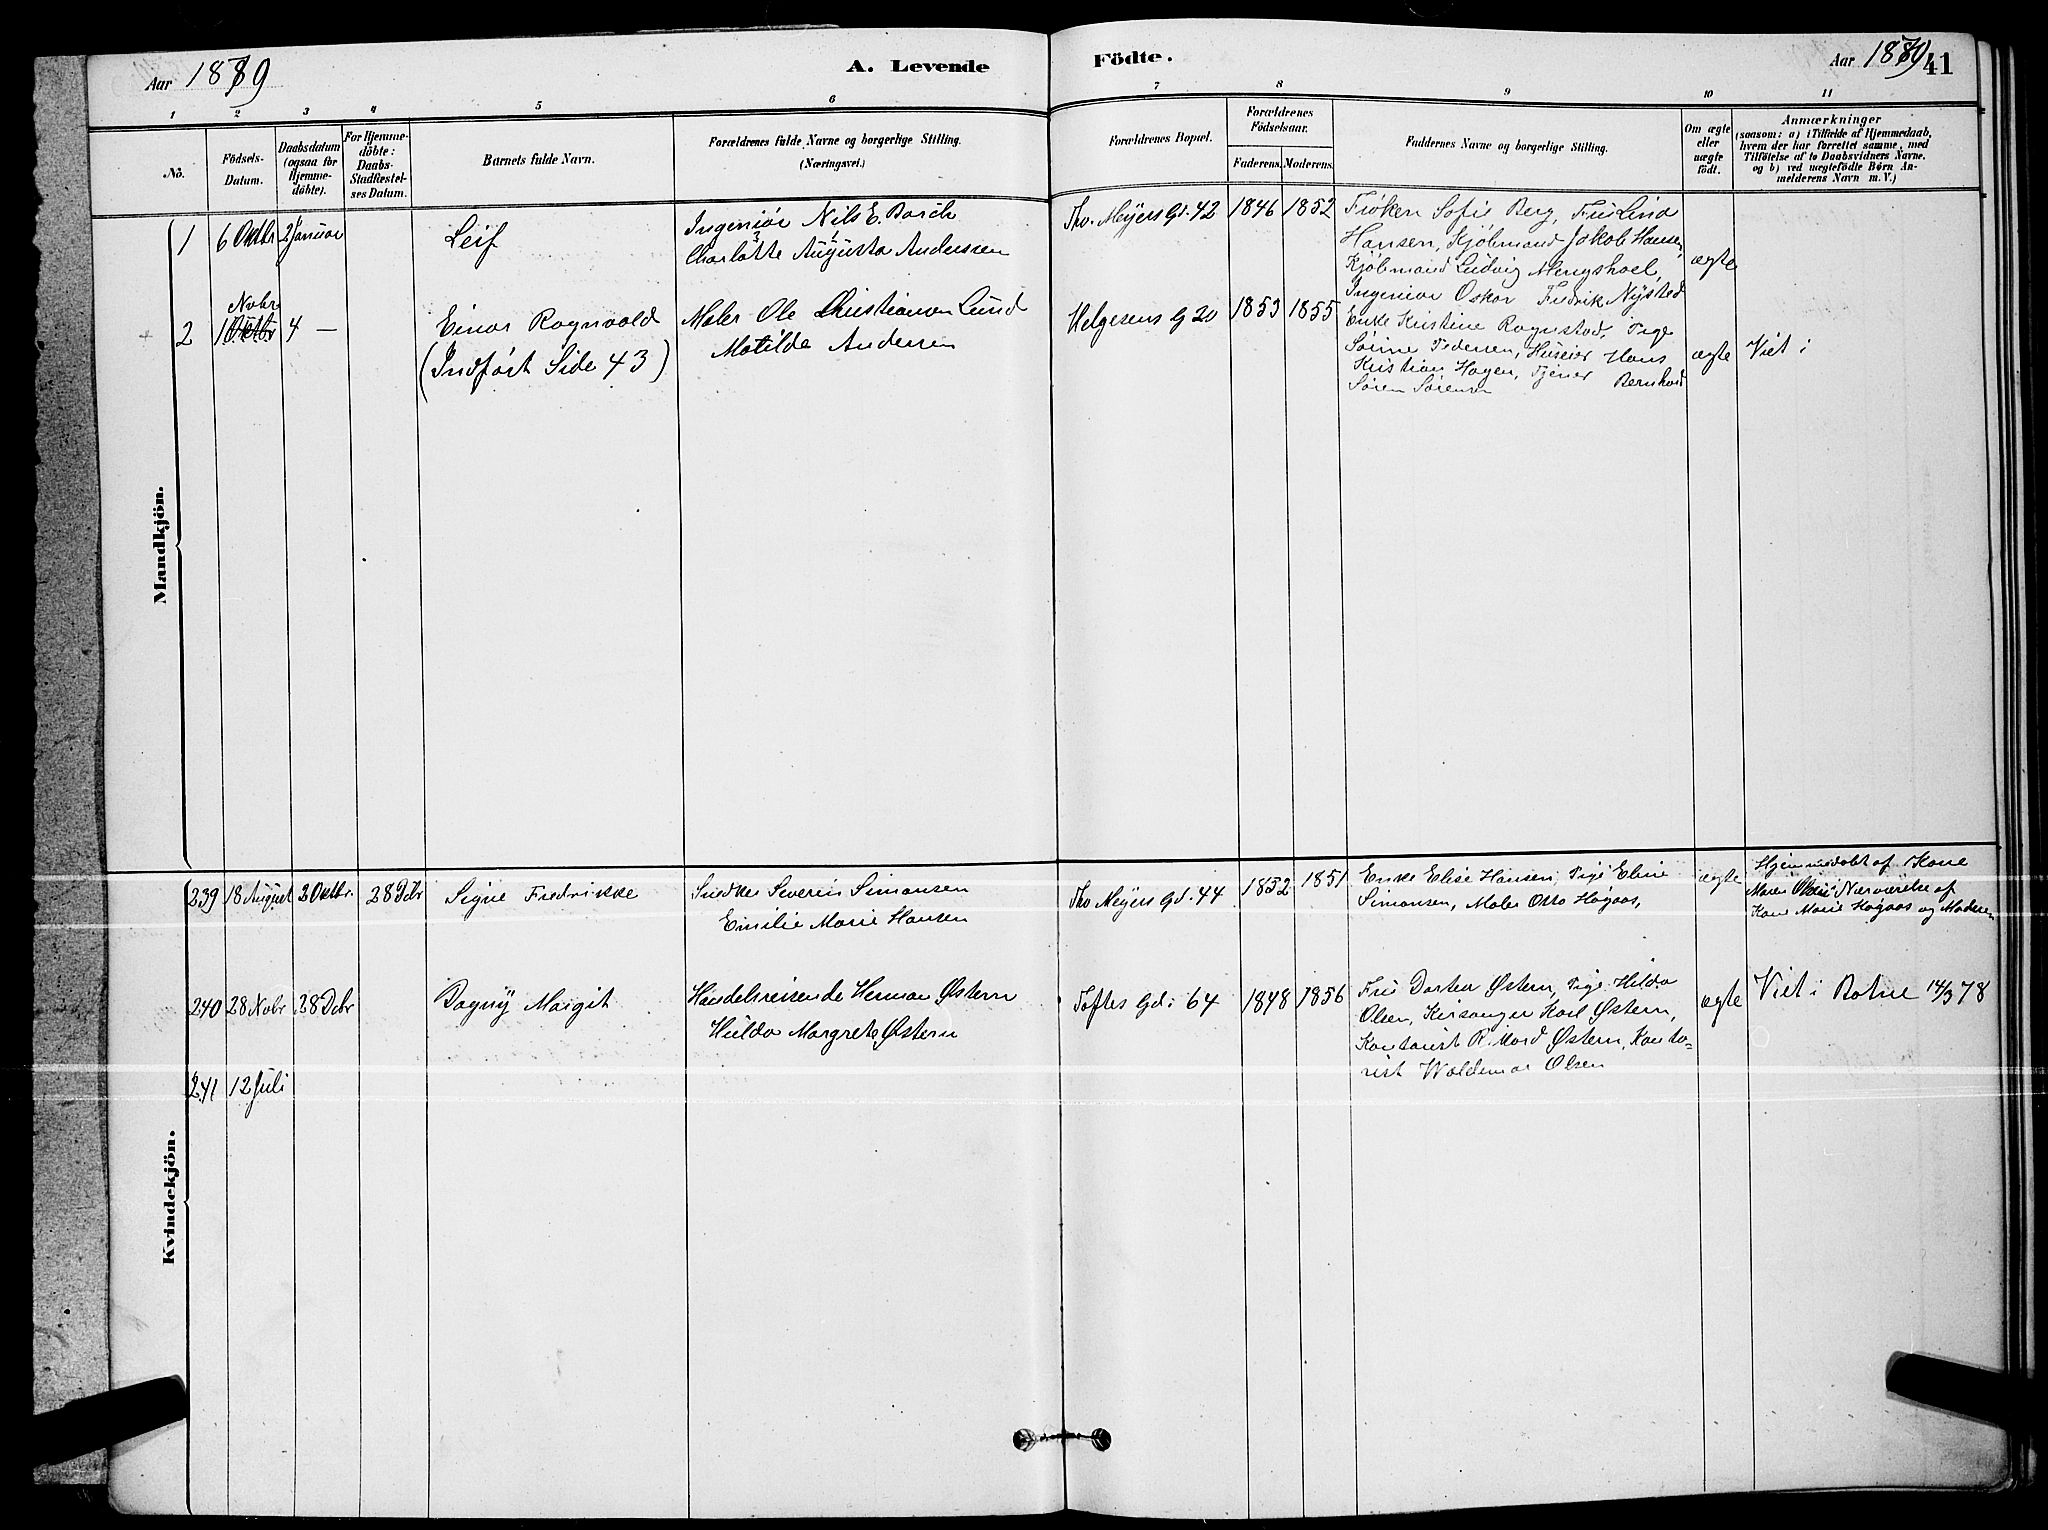 Aar 1879
A. Levende
Födte.
Aar 1879
41
1 2 3 4 5 6 7 8 9 10 11
No.
Födsels-
Datum.
Daabsdatum
(ogsaa for
Hjemme-
döbte).
For Hjemme-
döbte:
Daabs-
Stadfæstel-
ses Datum.
Barnets fulde Navn.
Forældrenes fulde Navne og borgerlige Stilling.
(Næringsvei.)
Forældrenes Bopæl.
Forældrenes
Födselsaar.
Faderens. Moderens.
Faddernes Navne og borgerlige Stilling.
Om ægte
eller
uægte
födt.
Anmærkninger
(saasom: a) i Tilfælde af Hjemmedaab,
hvem der har forrettet samme, med
Tilföielse af to Daabsvidners Navne.
og b) ved uægtefödte Børn An-
melderens Navn m. V.)
Mandkjön.
1 6 Oktbr 2 Januar Leif
Ingeniør Nils E. Borch
Charlotte Augusta Anderssen
Tho. Meyers Gd. 42 1846 1852
Frøken Sofie Berg, Fru Lina
Hansen, Kjøbmand Jakob Hansen,
Kjøbmand Ludvig Mengshoel,
Ingeniør Oskar Fredrik Nysted
ægte
2 1 Oktbr Nobr 4 —
Einar Ragnvald
(Indført Side 43)
Maler Ole Christiansen Lund
Matilde Andersen
Helgesens G 20 1853 1855
Enke Kristine Rognstad, Pige
Sørine Pedersen, Huseier Hans
Kristian Hagen, Tjener Bernhard
Søren Sørensen
ægte
Viet i
Kvindekjön.
239 18 August 2 Oktbr. 28 Dcbr Signe Fredrikke
Snedker Severin Simonsen
Emilie Marie Hansen
Tho Meyers Gd. 44 1852 1851
Enke Elise Hansen, Pige Eline
Simonsen, Maler Otto Høgaas,
ægte
Hjemmedøbt af Kone
Maren Olsen i Nærværelse af
Kone Marie Høgaas og Moderen
240 28 Nobr 28 Dcbr Dagny Margit
Handelsreisende Herman Østern
Hulda Margrete Østern
Toftes Gd: 64 1848 1856
Fru Dortea Østern, Pige Hilda
Olsen, Kirsanger Karl Østern,
Kontorist Rikard Østern, Konto-
rist Waldemar Olsen
ægte
Viet i Botne 14/3 78
241 12 Juli